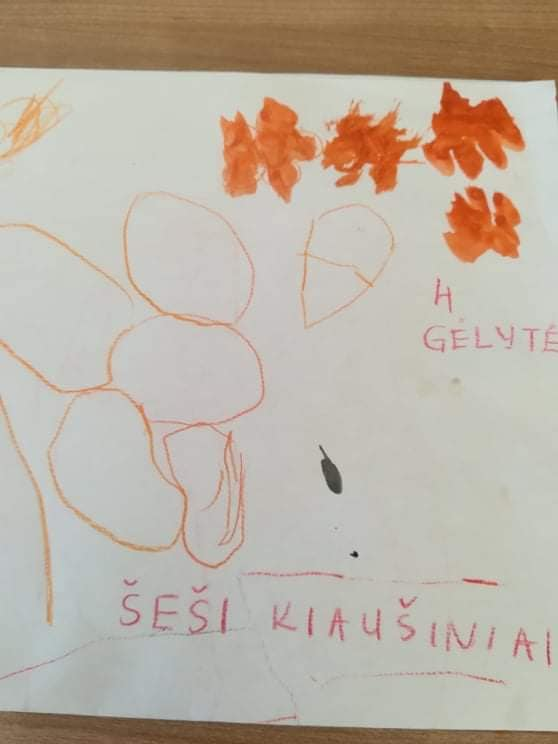 4
GĖLYTĖ
ŠEŠI KIAUŠINIAI